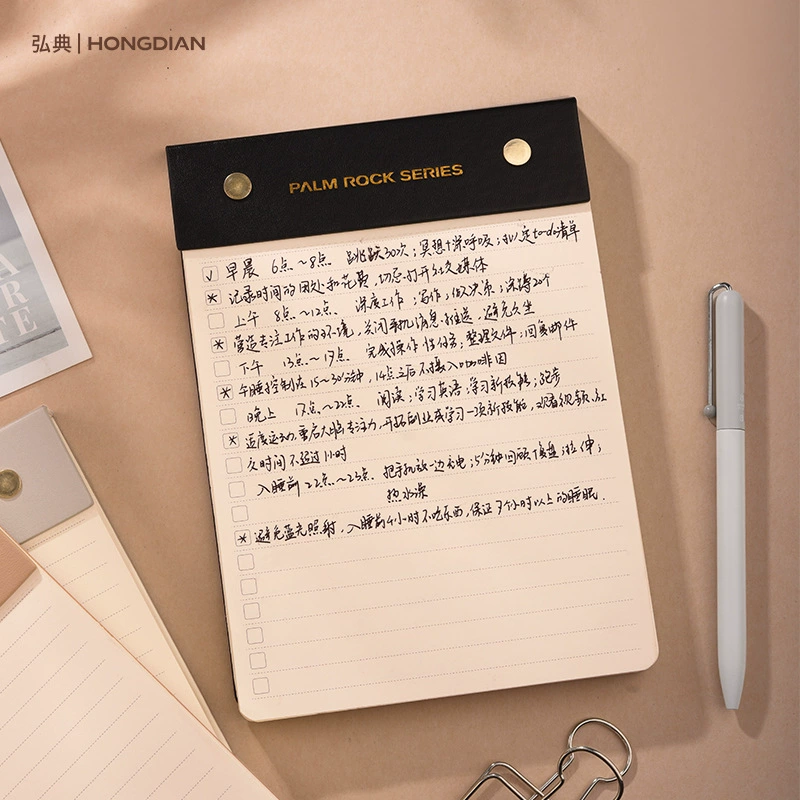 弘典 | HONGDIAN
PALM ROCK SERIES
早晨 6点~8点 跳跃30次；冥想+深呼吸；拟定to-do清单
记录时间的用处和花费，切忌打开社交媒体
上午 8点~12点 深度工作；写作；做决策；深蹲20个
营造专注工作的环境，关闭手机消息推送，避免久坐
下午 13点~17点 完成操作性任务；整理文件；回复邮件
午睡控制在15~30分钟，14点之后不摄入咖啡因
晚上 17点~22点 阅读；学习英语；学习新技能；跑步
适度运动，重启大脑专注力，开拓副业或学习一项新技能，观看视频、社
交时间不超过1小时
入睡前 22点~23点 把手机放一边充电；5分钟回顾复盘；拉伸；
热水澡
避免蓝光照射，入睡前4小时不吃东西，保证7个小时以上的睡眠.